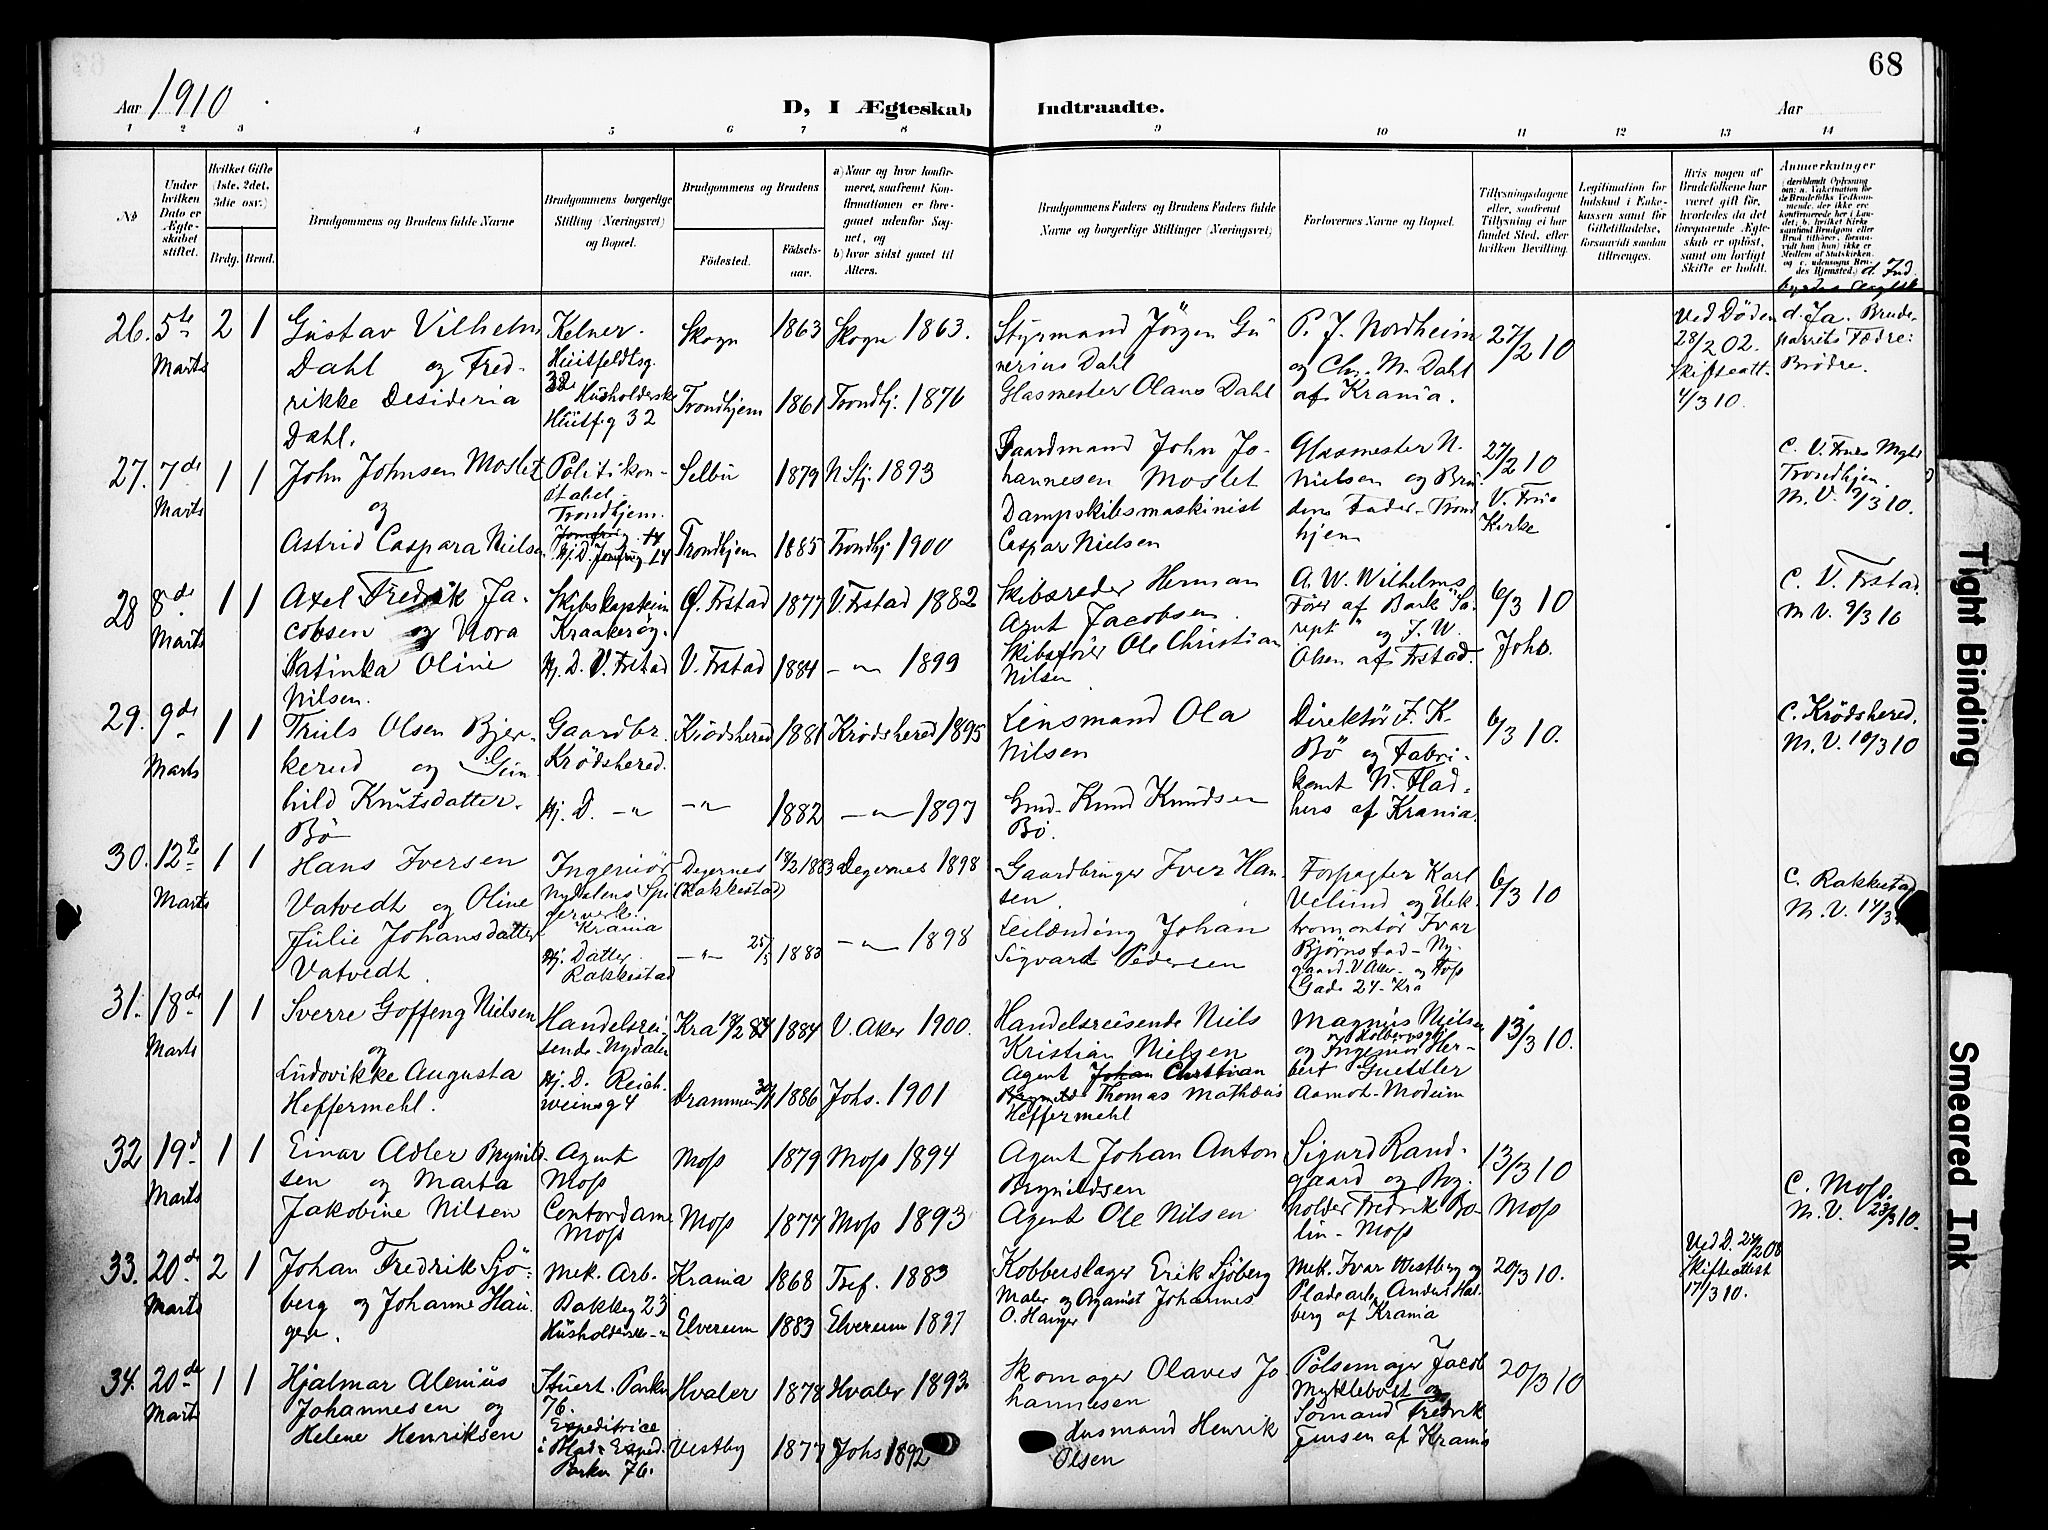 68
Aar 1910
D, I Ægteskab Indtraadte.
Aar
1 2 3 4 5 6 7 8 9 10 11 12 13 14
No
Under hvilken Dato er Ægteskabet stiftet.
Hvilket Gifte (1ste, 2det, 3die osv.)
Brdg. Brud.
Brudgommens og Brudens fulde Navne
Brudgommens borgerlige Stilling (Næringsvei) og Bopæl.
Brudgommens og Brudens
Födested. Födsels-aar.
a) Naar og hvor konfirmeret, saafremt Konfirmationen er foregaaet udenfor Sognet, og
b) hvor sidst gaaet til Alters.
Brudgommens Faders og Brudens Faders fulde Navne og borgerlige Stillinger (Næringsvei)
Forlovernes Navne og Bopæl.
Tillysningsdagene eller, saafremt Tillysning ei har fundet Sted, efter hvilken Bevilling.
Legitimation for Indskud i Enkekassen samt for Giftetilladelse, forsaavidt saadan tiltrænges.
Hvis nogen af Brudefolkene har været gift før, hvorledes da det foregaaende Ægteskab er opløst, samt om lovligt Skifte er holdt.
Anmerkninger
26. 5te Marts 2 1
Gustav Vilhelm
Dahl og Fred-
rikke Desideria
Dahl.
Kelner.
Huitfeldtsg.
32
Husholderske
Huitf.g 32
Skogn 1863 Skogn 1863.
Trondhjem 1861 Trondhj. 1876
Styrmand Jörgen Gu
nerius Dahl
Glasmester Olaus Dahl
P. J. Nordheim
og Chr. M. Dahl
af Krania.
27/2 10
Ved Döden
28/2 02.
Skifteatt.
4/3 10.
d. Ja. Brude-
parrets Fædre:
Brödre.
27. 7de Marts 1 1
John Johnsen Moslet
og
Astrid Caspara Nielsen
Politikon-
stabel
Trondhjem.
Hj. D. Jomfrug 14
Selbu 1879 N Stj. 1893
Trondhjem 1885 Trondhj 1900
Gaardmand John Jo-
hannesen Moslet
Dampskibsmaskinist
Caspar Nielsen
Glasmester N.
Nielsen og Bru-
dens Fader- Trond
hjem
27/2 10
V. Frue
Kirke
C. V. Frues Mgh
Trondhjem.
M. V. 9/3 10.
28 8de Marts 1 1
Axel Fredrik Ja-
cobsen og Nora
Katinka Oline
Nilsen.
Skibskaptein
Kraakeröy.
Hj. D. V. Frstad
Ø. Frstad 1877 V. Frstad 1882
V. Frstad 1884 -"- 1899
Skibsreder Herman
Arnt Jacobsen.
Skibsförer Ole Christian
Nilsen
A. W. Wilhelms
Förer af Bark "Sa-
rept" og J. W.
Olsen af Frstad.
6/3 10
Johs.
C. V. Frstad.
M V. 9/3 10
29. 9de Marts 1 1
Truls Olsen Bjer-
kerud og Gun-
hild Knutsdatter
Bö
Gaardbr.
Krödshered.
Hj. D. -"-
Krödshered 1881 Krödshered 1895
-"- 1882 -"- 1897
Lensmand Ola
Nilsen
Gmd. Knud Knudsen
Bö.
Direktör F. K.
Bö og Fabri-
kant N. Flad-
hers af Krania.
6/3 10.
C. Krödshered.
M. V. 10/3 10
30. 12te Marts 1 1
Hans Iversen
Vatvedt og Oline
Julie Johansdatter
Vatvedt.
Ingeniör
Nydalens Spi
gerverk.
Krania
Hj. Datter
Rakkestad
Degernes
(Rakkestad) 18/2 1883 Degernes 1898
-"- 25/5 1883 -"- 1898
Gaardbruger Iver Han-
sen.
Leilænding Johan
Sigvart Pedersen
Forpagter Karl
Velund og Elek-
tromontör Ivar
Björnstad- Ny-
gaard- V Aker- og Foss
Gade 24- Kra
6/3 10
C. Rakkestad
M. V. 14/3
31. 18de Marts 1 1
Sverre Goffeng Nielsen
og
Ludovikke Augusta
Heffermehl.
Handelsrei-
sende- Nydalen
Hj. D. Reich-
weinsg 4
Kra 18/2 84 1884 V. Aker 1900.
Drammen 30/1 1886 Johs. 1901
Handelsreisende Niels
Kristian Nielsen
Agent Johan Christian
Thomas Mathæus
Heffermehl
Magnus Nielsen
og Ingeniör Her-
bert Guettler
Aamot- Modum
13/3 10.
32 19d Marts 1 1
Einar Adler Brynild-
sen og Marta
Jakobine Nilsen
Agent
Moss
Contordame
Moss
Moss 1879 Moss 1894
Moss 1877 Moss 1893
Agent Johan Anton
Brynildsen
Agent Ole Nilsen
Sigurd Rand-
gaard og Bog-
holder Fredrik Bo-
lin- Moss
13/3 10
Moss
C. Moss.
M. V. 23/3 10.
33. 20de Marts 2 1
Johan Fredrik Sjö-
berg og Johanne Hau-
gen.
Mek. Arb.
Bakkeg 23
Husholderske -"-
Krania 1868 Tref. 1883
Elverum 1883 Elverum 1897
Kobberslager Erik Sjöberg
Maler og Organist Johannes
O. Haugen
Mek. Ivar Westberg og
Pladearb. Anders Hal-
berg af Krania
20/3 10.
Ved D. 24/2 08
Skifteattest
17/3 10.
34. 20de Marts 1 1
Hjalmar Alenius
Johannesen og
Helene Henriksen
Stuert. Parkv
76.
Expeditrice
i Mad- Exped.
Parkv 76.
Hvaler 1878 Hvaler 1893
Vestby 1877 Johs 1892
Skomager Olaves Jo
hannesen
Husmand Henrik
Olsen
Pölsemager Jacob
Myklebost og
Sömand Fredrik
Jensen af Krania
20/3 10
Tight Binding
Smeared Ink